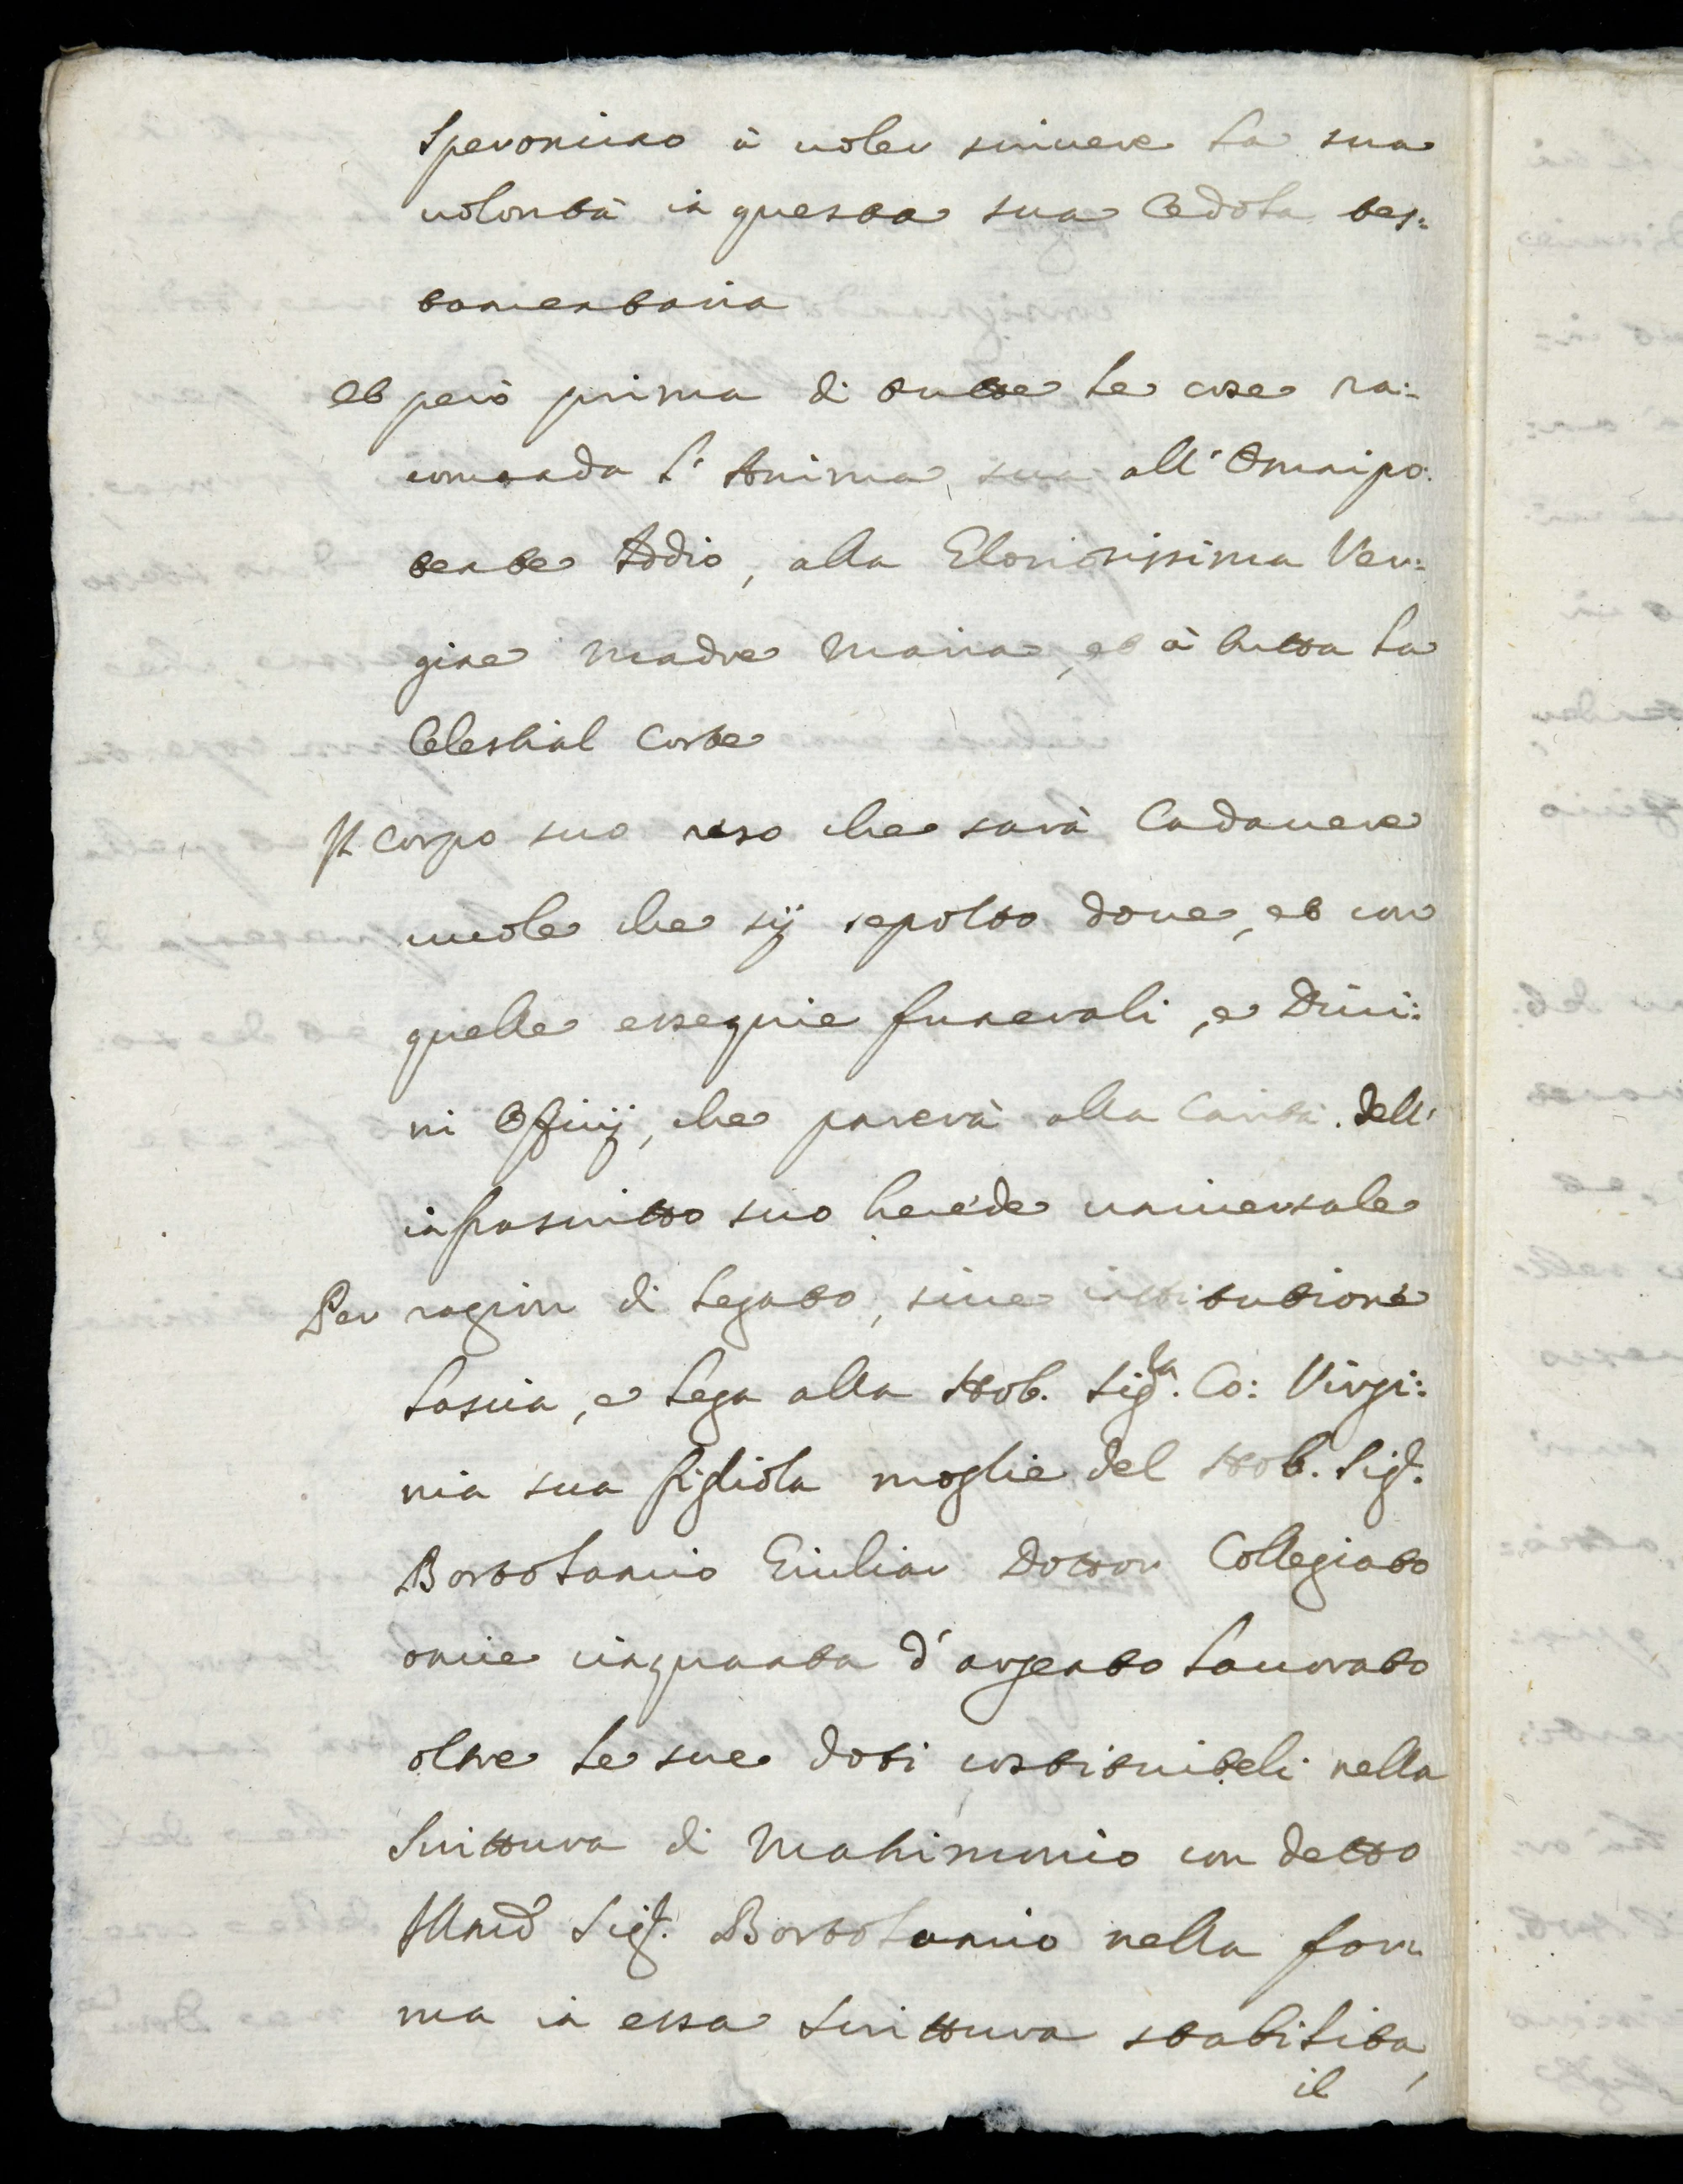 Speronino à uoler scriuere la sua
uolontà in questa sua Cedola tes:
tamentaria
et però prima di tutte le cose ra:
comanda l'Anima sua all'Omnipo:
tente Iddio, alla Gloriosissima Ver:
gine Madre Maria, et à tutta la
Celestial Corte
Il Corpo suo reso che sarà Cadauere
uuole che sij sepolto doue, et con
quelle essequie funerali, e Diui:
ni Officij, che parerà alla Carità dell'
infrascritto suo herede uniuersale
Per ragion di legato, siue institutione
lascia, e lega alla Nob. Sig.ra Co: Virgi:
nia sua figliola moglie del Nob. Sig.r
Bortolamio Giulian Dottor Collegiato
oncie cinquanta d'argento lauorato
oltre le sue doti costituiteli nella
Scrittura di Matrimonio con detto
Sig.r Bortolamio nella for:
ma in essa Scrittura stabilita,
il